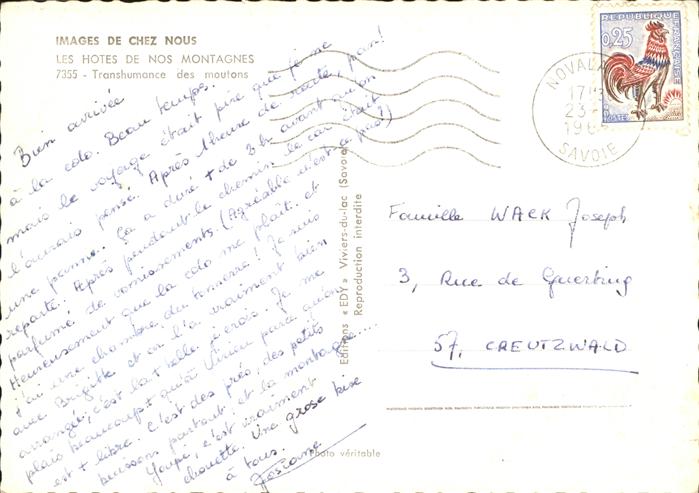 IMAGES DE CHEZ NOUS
LES HOTES DE NOS MONTAGNES
7355 - Transhumance des moutons
Bien arrivée
à la colo. Beau temps.
mais le voyage était pire que je ne
l'aurais pensé. Après 1 heure de route, pan!
une panne. Ça a duré + de 3 h avant qu'on
reparte. Après pendant le chemin le car était
parfumé de vomissements. (Agréable n'est-ce pas?)
Heureusement que la colo me plaît. et
j'ai une chambre du tonnerre! Je suis
avec Brigitte et on l'a vraiment bien
arrangée, c'est la + belle je crois. Je me
plais beaucoup + qu'où Virieu parce qu'on
est + libre. C'est des prés, des petits
buissons partout, et la montagne....
Youpi, c'est vraiment
chouette. Une grosse bise
à tous.
Josianne
Editions « EDY » Viviers-du-lac (Savoie)
Reproduction interdite
Photo véritable
REPUBLIQUE FRANÇAISE
0,25
POSTES
17H
23-
196
SAVOIE
Famille WACK Joseph
3, Rue de Guerting
57, CREUTZWALD